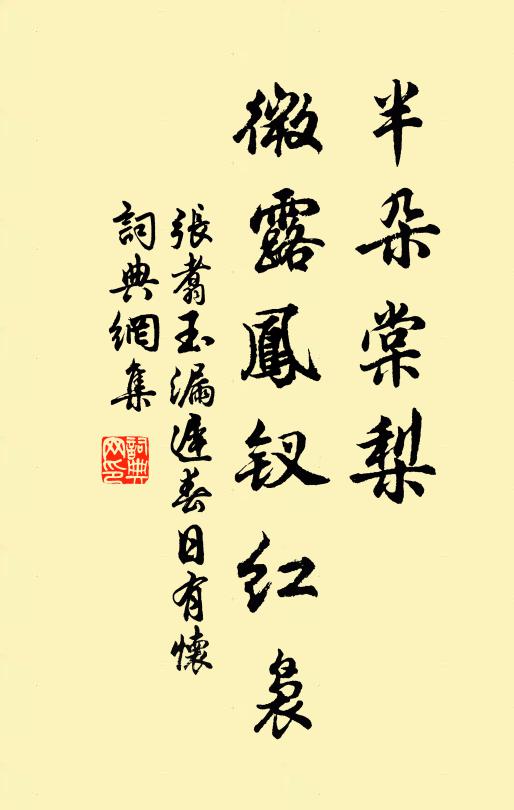 半朵棠梨
微露鳳釵红裊
張翥玉漏遲春日有懷
詞典網集
詞典網印